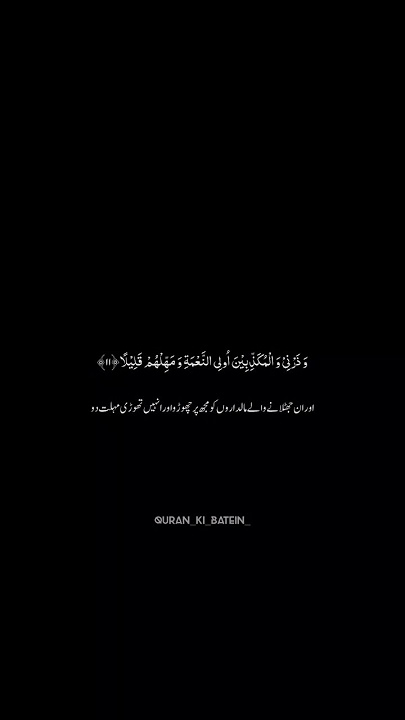 وَ ذَرْنِیْ وَ الْمُكَذِّبِیْنَ اُولِی النَّعْمَةِ وَ مَهِّلْهُمْ قَلِیْلًا﴿۱۱﴾
اور ان جھٹلانے والے مالداروں کو مجھ پر چھوڑو اور انہیں تھوڑی مہلت دو
QURAN_KI_BATEIN_